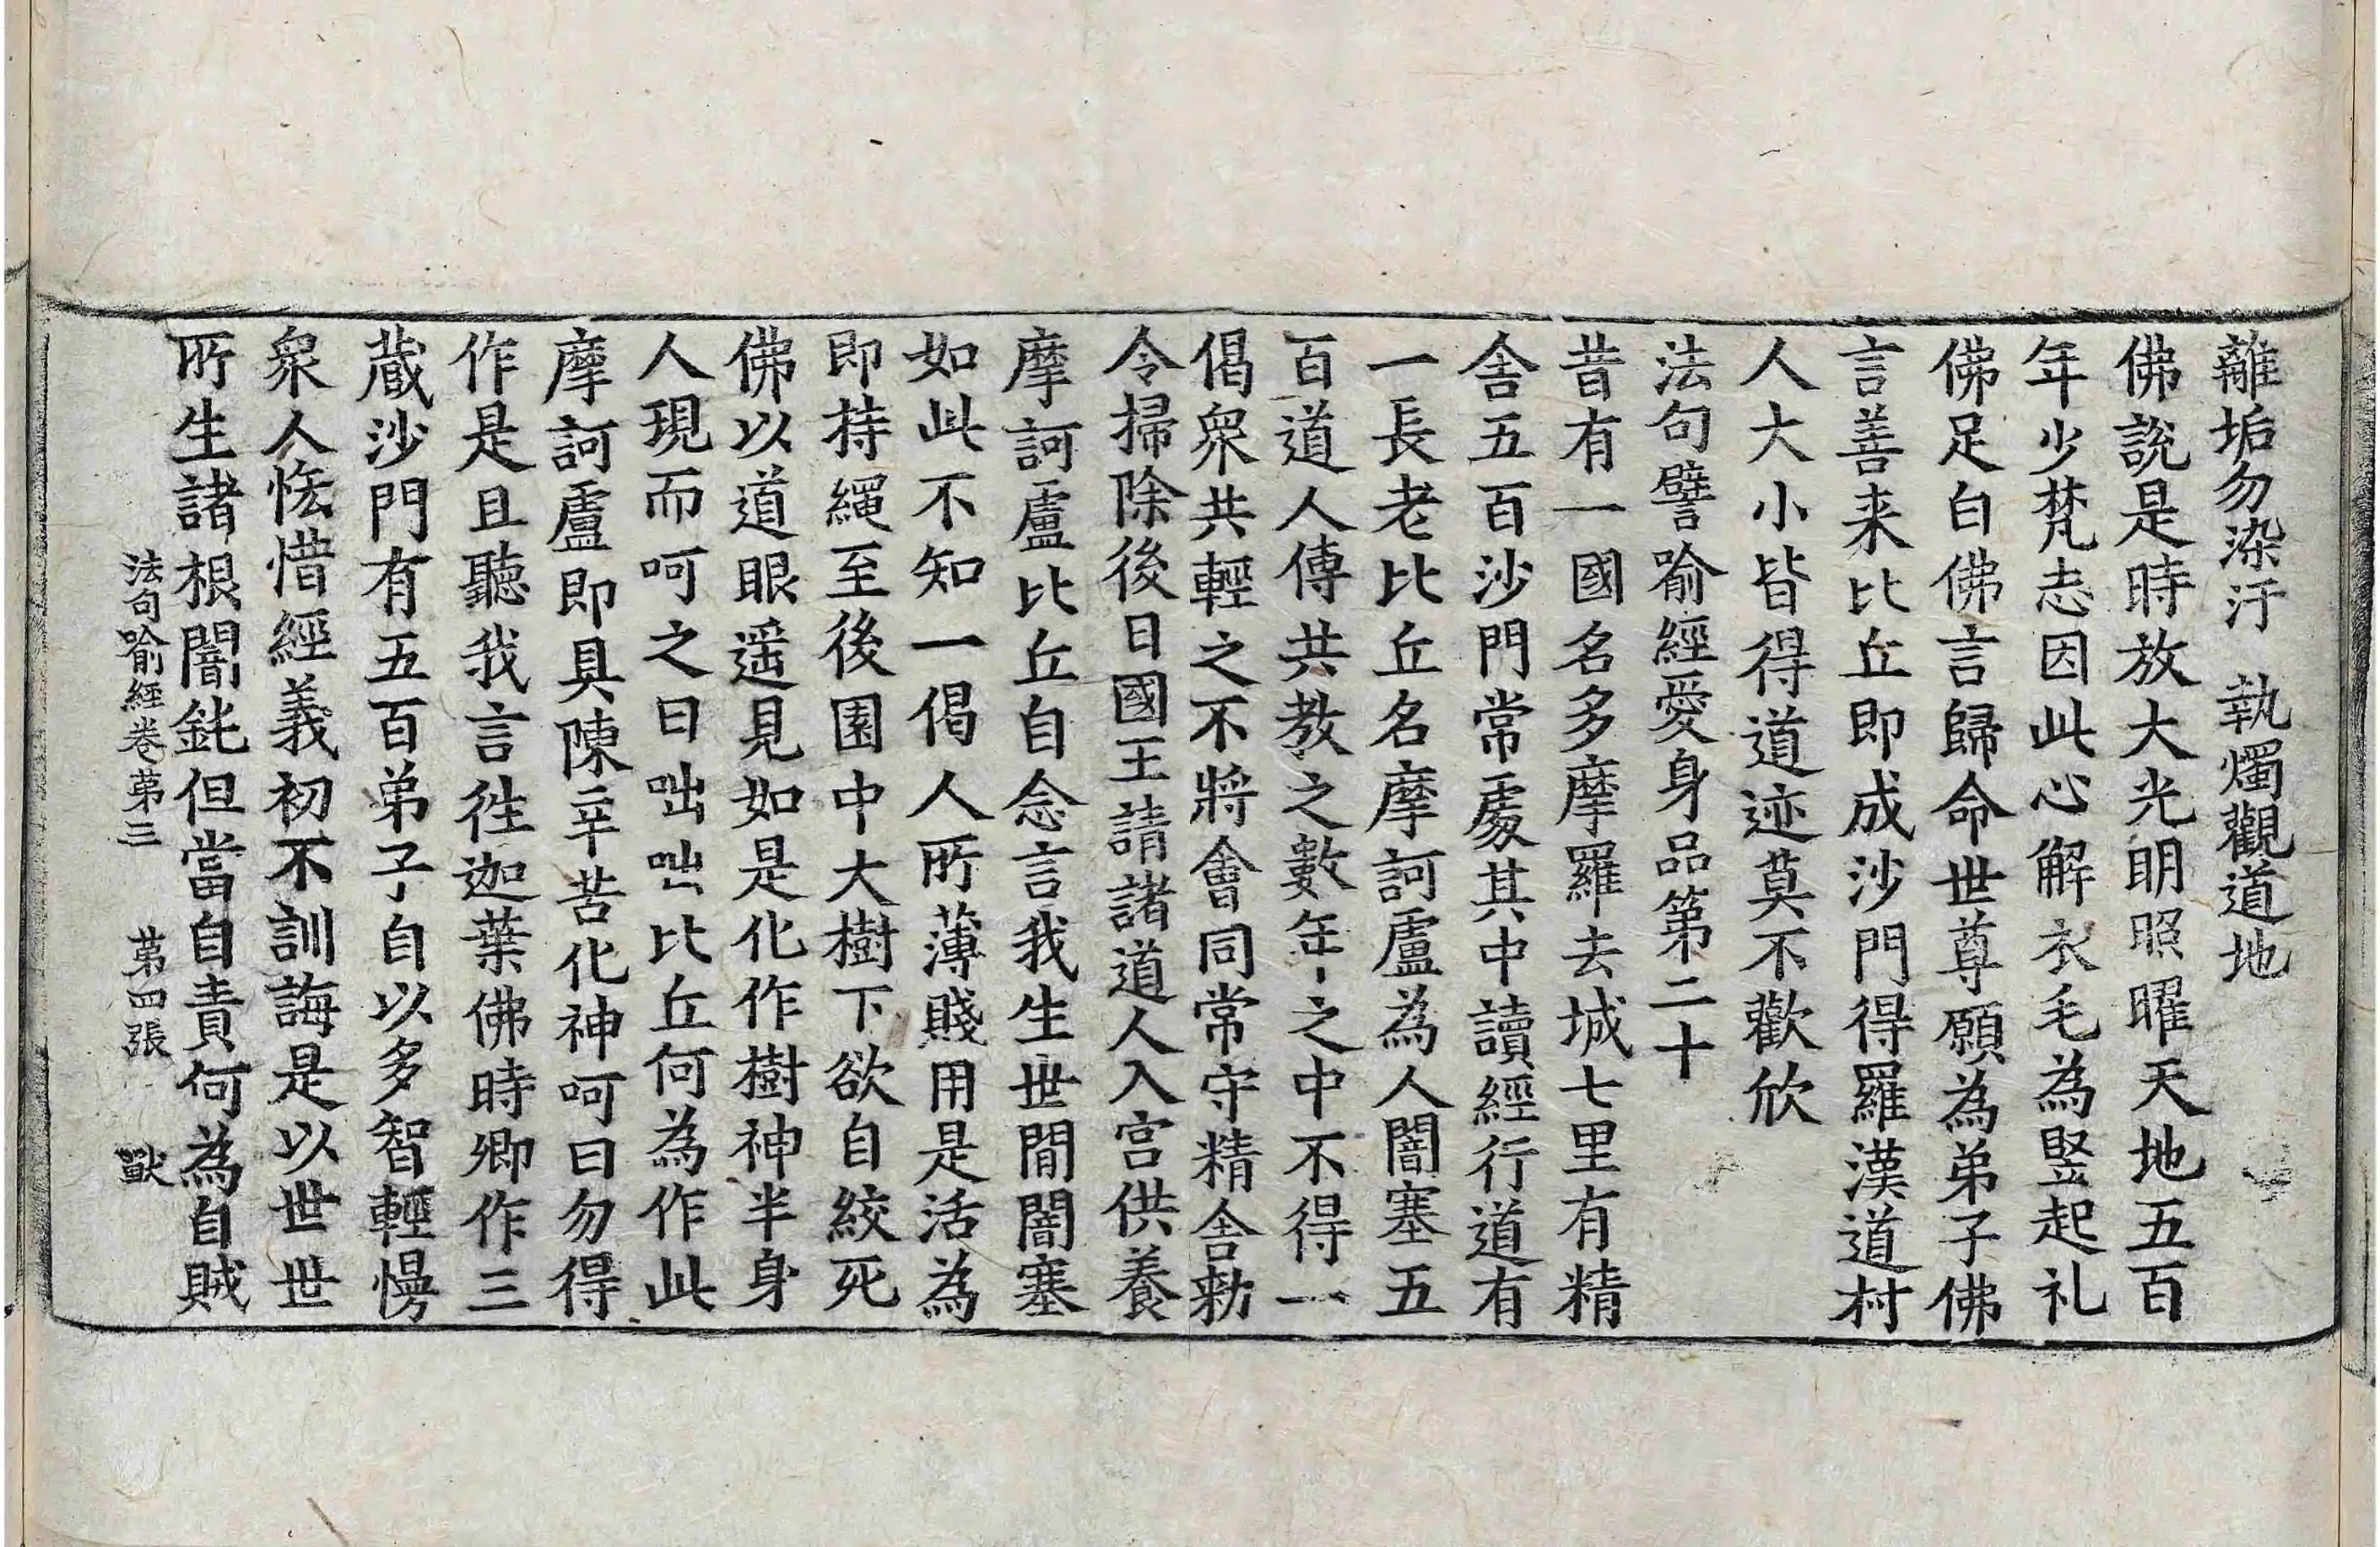 離垢勿染汙　執燭觀道地
佛說是時放大光明照曜天地五百
年少梵志因此心解衣毛為竪起礼
佛足白佛言歸命世尊願為弟子佛
言善来比丘即成沙門得羅漢道村
人大小皆得道迹莫不歡欣
法句譬喻經愛身品第二十
昔有一國名多摩羅去城七里有精
舍五百沙門常處其中讀經行道有
一長老比丘名摩訶盧為人闇塞五
百道人傳共教之數年之中不得一
偈衆共輕之不將會同常守精舍勑
令掃除後日國王請諸道人入宫供養
摩訶盧比丘自念言我生世間闇塞
如此不知一偈人所薄賤用是活為
即持繩至後園中大樹下欲自絞死
佛以道眼遥見如是化作樹神半身
人現而呵之曰咄咄比丘何為作此
摩訶盧即具陳辛苦化神呵曰勿得
作是且聽我言徃迦葉佛時卿作三
蔵沙門有五百弟子自以多智輕慢
衆人恡惜經義初不訓誨是以世世
所生諸根闇鈍但當自責何為自賊
法句喻經卷苐三　苐四張　獸